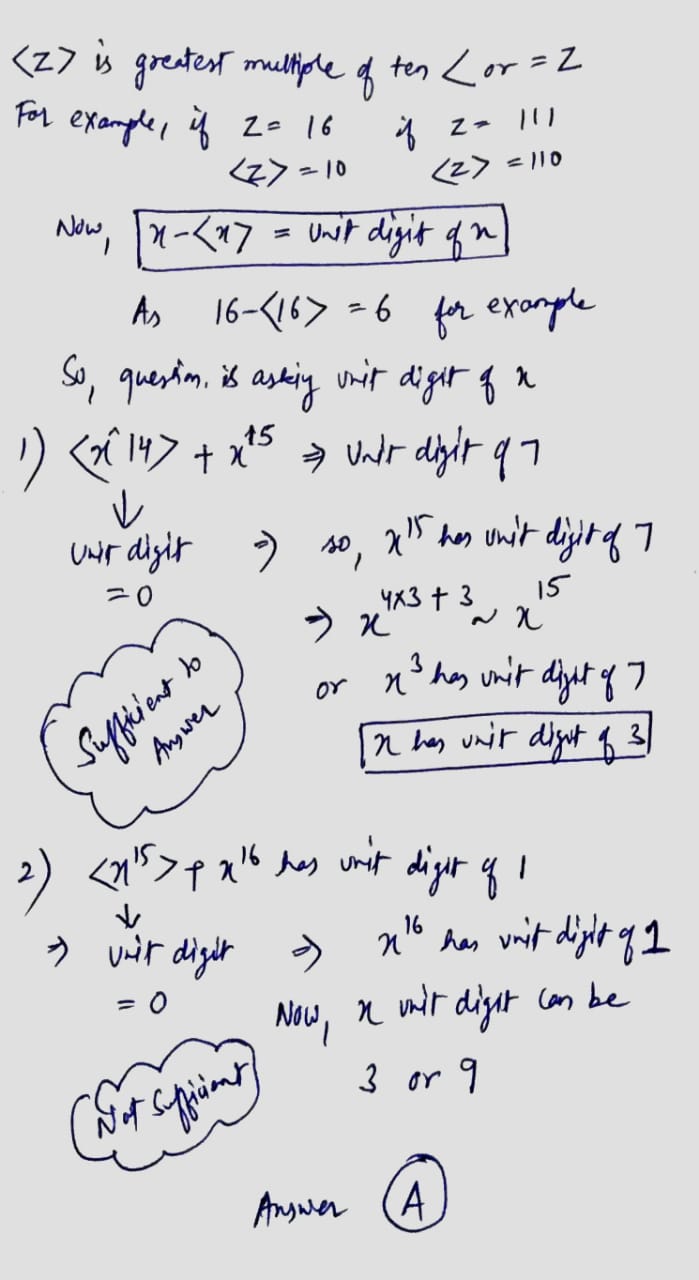 <Z> is greatest multiple of ten < or = Z
For example, if Z = 16 if Z = 111
<Z> = 10 <Z> = 110
Now, x-<x> = Unit digit of x
As 16-<16> = 6 for example
So, question is asking unit digit of x
1) <x^14> + x^15 ⇒ Unit digit of 7
↓
Unit digit ⇒ so, x^15 has unit digit of 7
= 0
⇒ x^4x3+3 ~ x^15
or x^3 has unit digit of 7
Sufficient to
Answer
x has unit digit of 3
2) <x^15> + x^16 has unit digit of 1
↓
⇒ Unit digit ⇒ x^16 has unit digit of 1
= 0 Now, x unit digit can be
3 or 9
Not Sufficient
Answer A